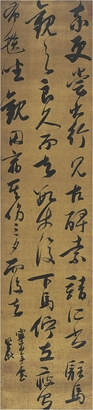 率更嘗出行見古碑索靖所書駐馬
觀之良久而去數步復下馬佇立疲則
布毯坐觀因宿其傍三日而後去